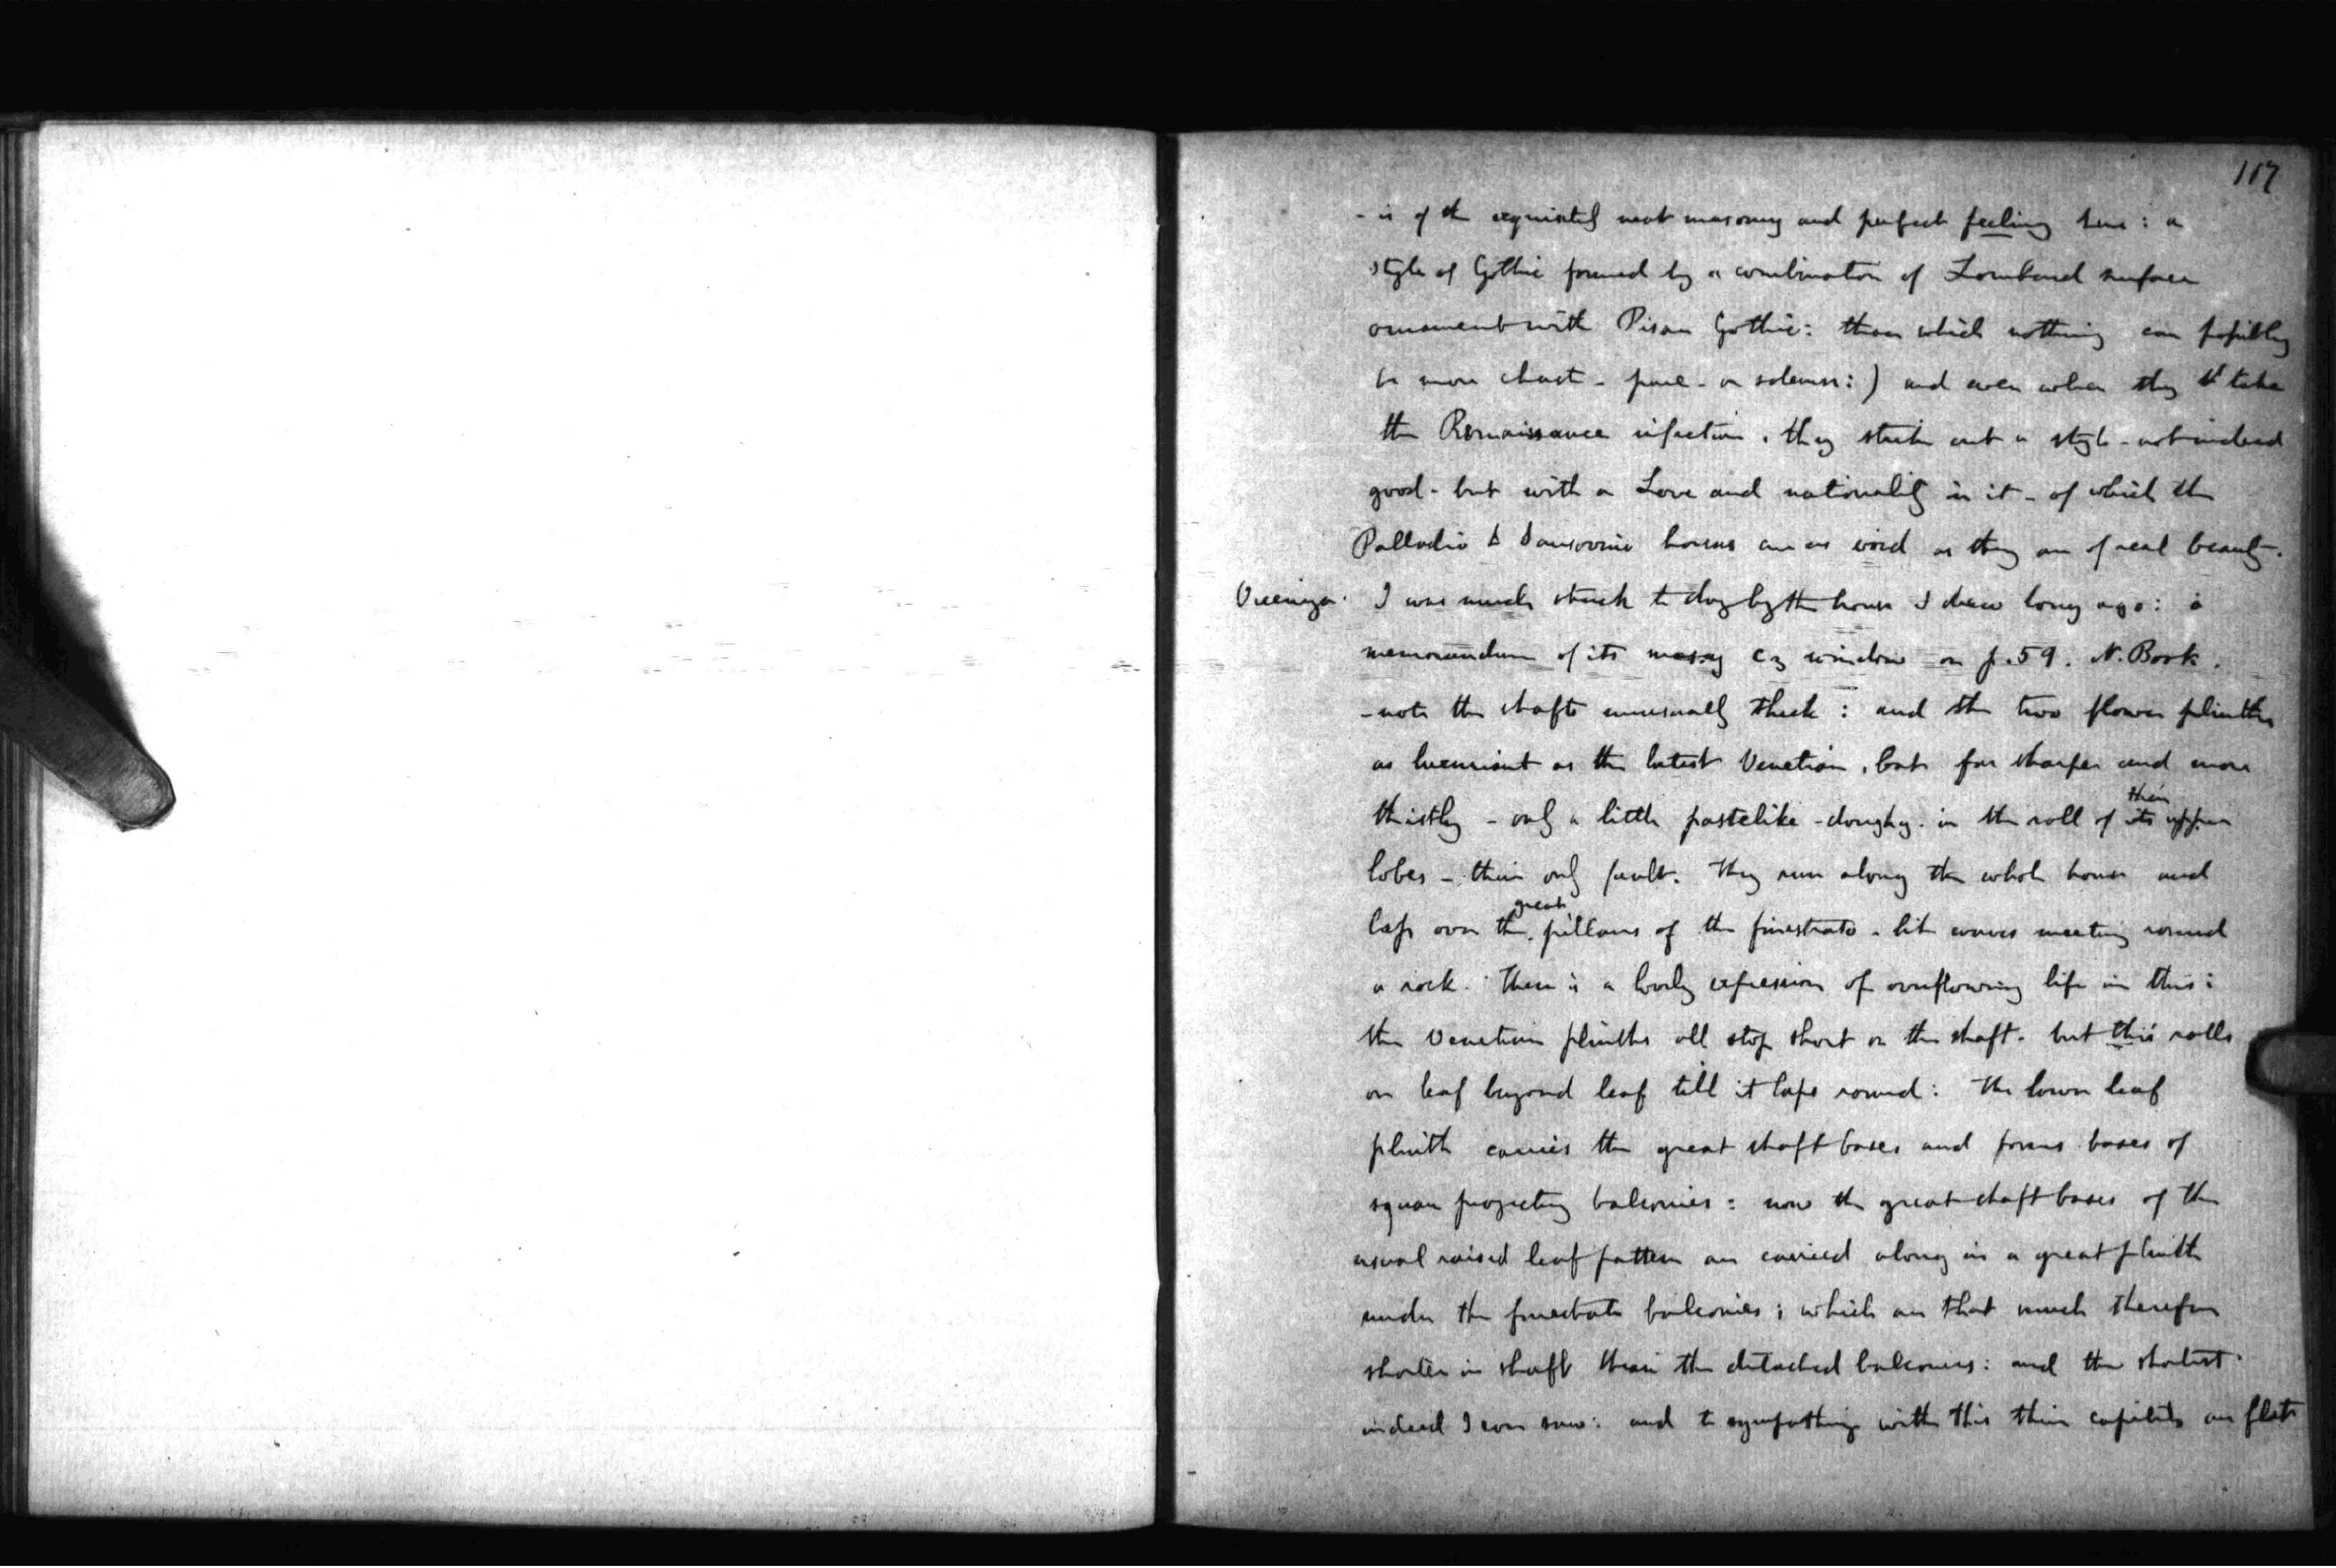 117
- is of the exquisitely neat masonry and perfect feeling here : a
style of Gothic formed by a combination of Lombard surface
ornament with Pisan Gothic : than which nothing can possibly
be more chast - pure - or solemn : ) and even when they take
the Renaissance infection , they strike out a style - not indeed
good - but with a Love and nationality in it - of which the
Palladio & Sansovino houses are as void as they are of real beauty .
Vicenza . I was much struck to day by the house I drew long ago : a
memorandum of its window on p. 59 . N. Book .
- note the shafts unusually thick : and the two flower plinths
as luxuriant as the latest Venetian , but far sharper and more
thistly - only a little pastelike - doughy - in the roll of their upper
lobes - their only fault . They run along the whole house and
laps over the great pillars of the finestrata - like waves meeting round
a rock . There is a lovely expression of overflowing life in this :
the Venetian plinths all stop short on the shaft - but this rolls
on leaf beyond leaf till it laps round : The lower leaf
plinth carries the great shaft bases and forms bases of
square projecting balconies : now the great shaft bases of the
usual raised leaf pattern are carried along in a great plinth
under the finestrata balconies ; which are that much therefore
shorter in shaft than the detached balconies : and the shortest
indeed I ever saw : and to sympathize with this their capitals are flat